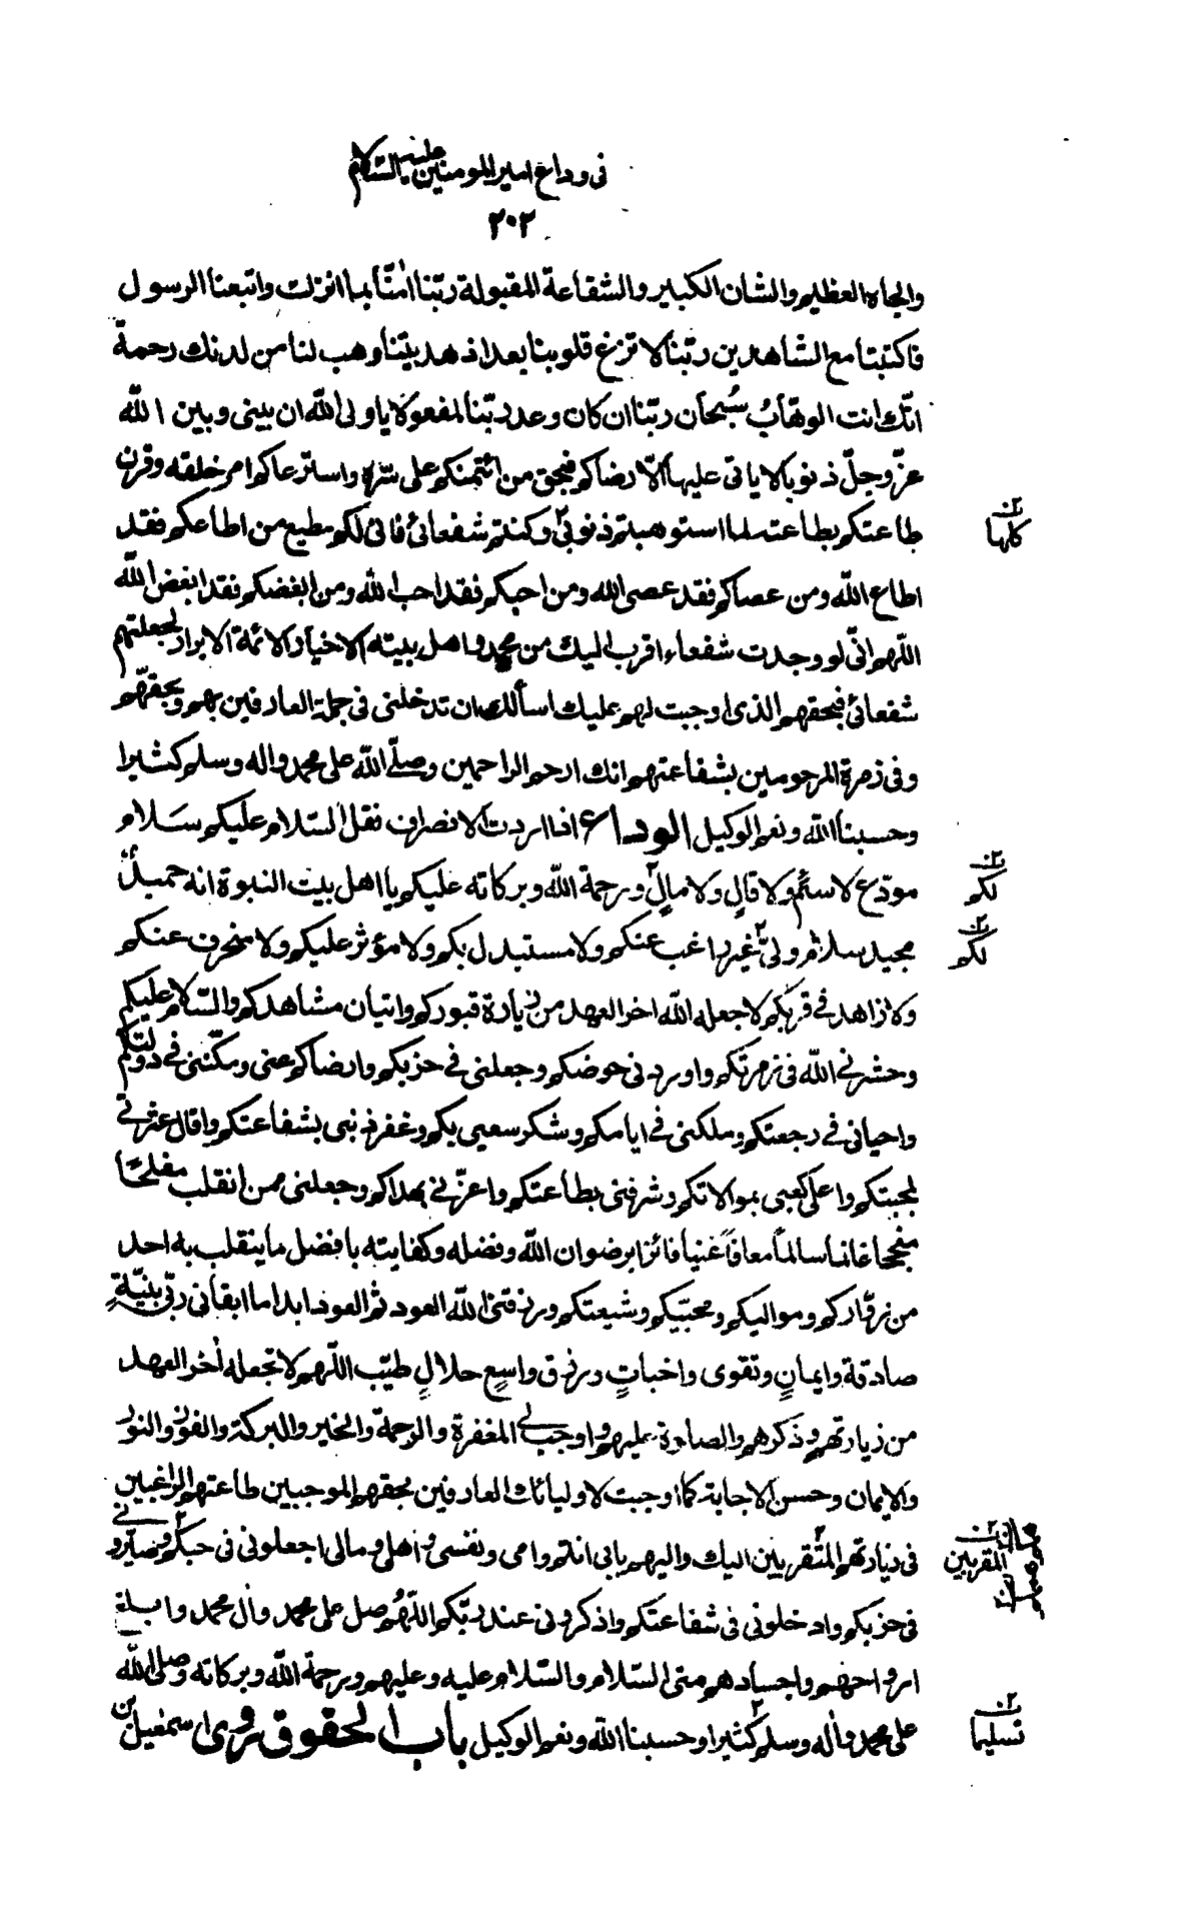 فى وداع امير المومنين عليه السلام
٢٠٢
والجاه العظيم والشان الكبير والشفاعة المقبولة ربّنا امنّا بما انزلت واتبعنا الرسول
فاكتبنا مع الشاهدين ربّنا لا تزغ قلوبنا بعد اذ هديتنا وهب لنا من لدنك رحمةً
انّك انت الوهّابُ سُبحان ربّنا ان كان وعد ربّنا لمفعولا يا ولى اللّه ان بينى وبين اللّه
عزّ وجلّ ذنوبا لا ياتى عليها الّا رضاكم فبحق من ائتمنكم على سرّه واسترعاكم امر خلقه وقرن
طاعتكم بطاعته لما استوهبتم ذنوبى وكنتم شفعائى فانى لكم مطيع من اطاعكم فقد
كلها
اطاع اللّه ومن عصاكم فقد عصى الله ومن احبكم فقد احب الله ومن ابغضكم فقد ابغض اللّه
اللّهم انّى لو وجدت شفعاء اقرب اليك من محمد واهل بيته الاخيار الائمة الابرار لجعلتهم
شفعائى فبحقهم الذى اوجبت لهم عليك اسألك ان تدخلنى فى جملة العارفين بهم وبحقّهم
وفى زمرة المرحومين بشفاعتهم انك ارحم الراحمين وصلّى اللّه على محمد واله وسلم كثيرا
وحسبنا اللّه ونعم الوكيل الوداع اذا اردت الانصراف فقل السّلام عليكم سَلام
مودّع لا سئمٍ ولا قالٍ ولا مالٍ ورحمة اللّه وبركاته عليكم يا اهل بيت النبوة انه حميدٌ
لكم
مجيد سلام ولىٍّ غير راغب عنكم ولا مستبدل بكم ولا مؤثر عليكم ولا منحرف عنكم
لكم
ولا زاهد فى قربكم لا جعله اللّه اخر العهد من زيارة قبوركم واتيان مشاهدكم والسّلام عليكم
وحشرنى اللّه فى زمرتكم واوردنى حوضكم وجعلنى فى حزبكم وارضاكم عنى ومكّننى فى دولتكم
واحيانى فى رجعتكم وملكنى فى ايامكم وشكر سعيى بكم وغفر ذنبى بشفاعتكم واقال عثرتى
لمحبتكم واعلى كعبى بموالاتكم وشرفنى بطاعتكم واعزّنى بهداكم وجعلنى ممن انقلب مفلحًا
منجحا غانما سالماً معافاً غنيا فائزا برضوان اللّه وفضله وكفايته بافضل ما ينقلب به احد
من زوّاركم ومواليكم ومحبّيكم وشيعتكم ورزقنى اللّه العود ثم العود ابدا ما ابقانى ربّى بنيّةٍ
صادقة وايمانٍ وتقوى واخباتٍ ورزق واسعٍ حلالٍ طيّب اللّهم لا تجعله أخر العهد
من زيارتهم وذكرهم والصلوة عليهم واوجب لى المغفرة والرحمة والخير والبركة والفوز والنور
والايمان وحسن الاجابة كما اوجبت لاوليائك العارفين بحقهم الموجبين طاعتهم الراغبين
فى زيارتهم المتقربين اليك واليهم بابى انتم وامى ونفسى واهلى ومالى اجعلونى فى حبكم وصيّرونى
المقربين
فى حزبكم وادخلونى فى شفاعتكم واذكرونى عند ربّكم اللّهُم صل على محمد وأل محمد وابلغ
ارواحهم واجسادهم منى السّلام والسّلام عليه وعليهم ورحمة اللّه وبركاته وصلى اللّه
على محمد وأله وسلم كثيرا وحسبنا اللّه ونعم الوكيل باب الحقوق روى اسمعيل بن
تسليما